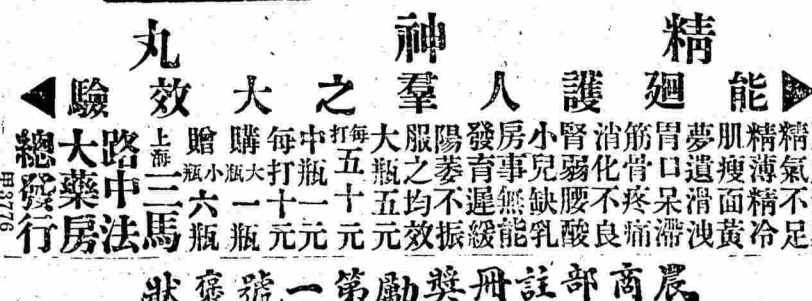 精神丸
能廻護人羣之大效驗
精氣不足
精薄精冷
肌瘦面黃
夢遺滑洩
胃口呆滯
筋骨疼痛
消化不良
腎弱腰酸
小兒缺乳
房事無能
發育遲緩
陽萎不振
服之均效
大瓶五元
每打五十元
中瓶一元
每打十元
購大瓶一瓶
贈小瓶六瓶
上海三馬
路中法
大藥房
總發行
甲3776
農商部註冊獎勵第一號褒狀